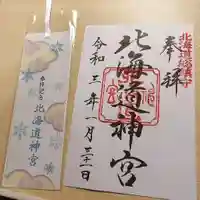 北海道総鎮守
奉拝
北海道神宮
令和三年一月三十一日
北海道神宮